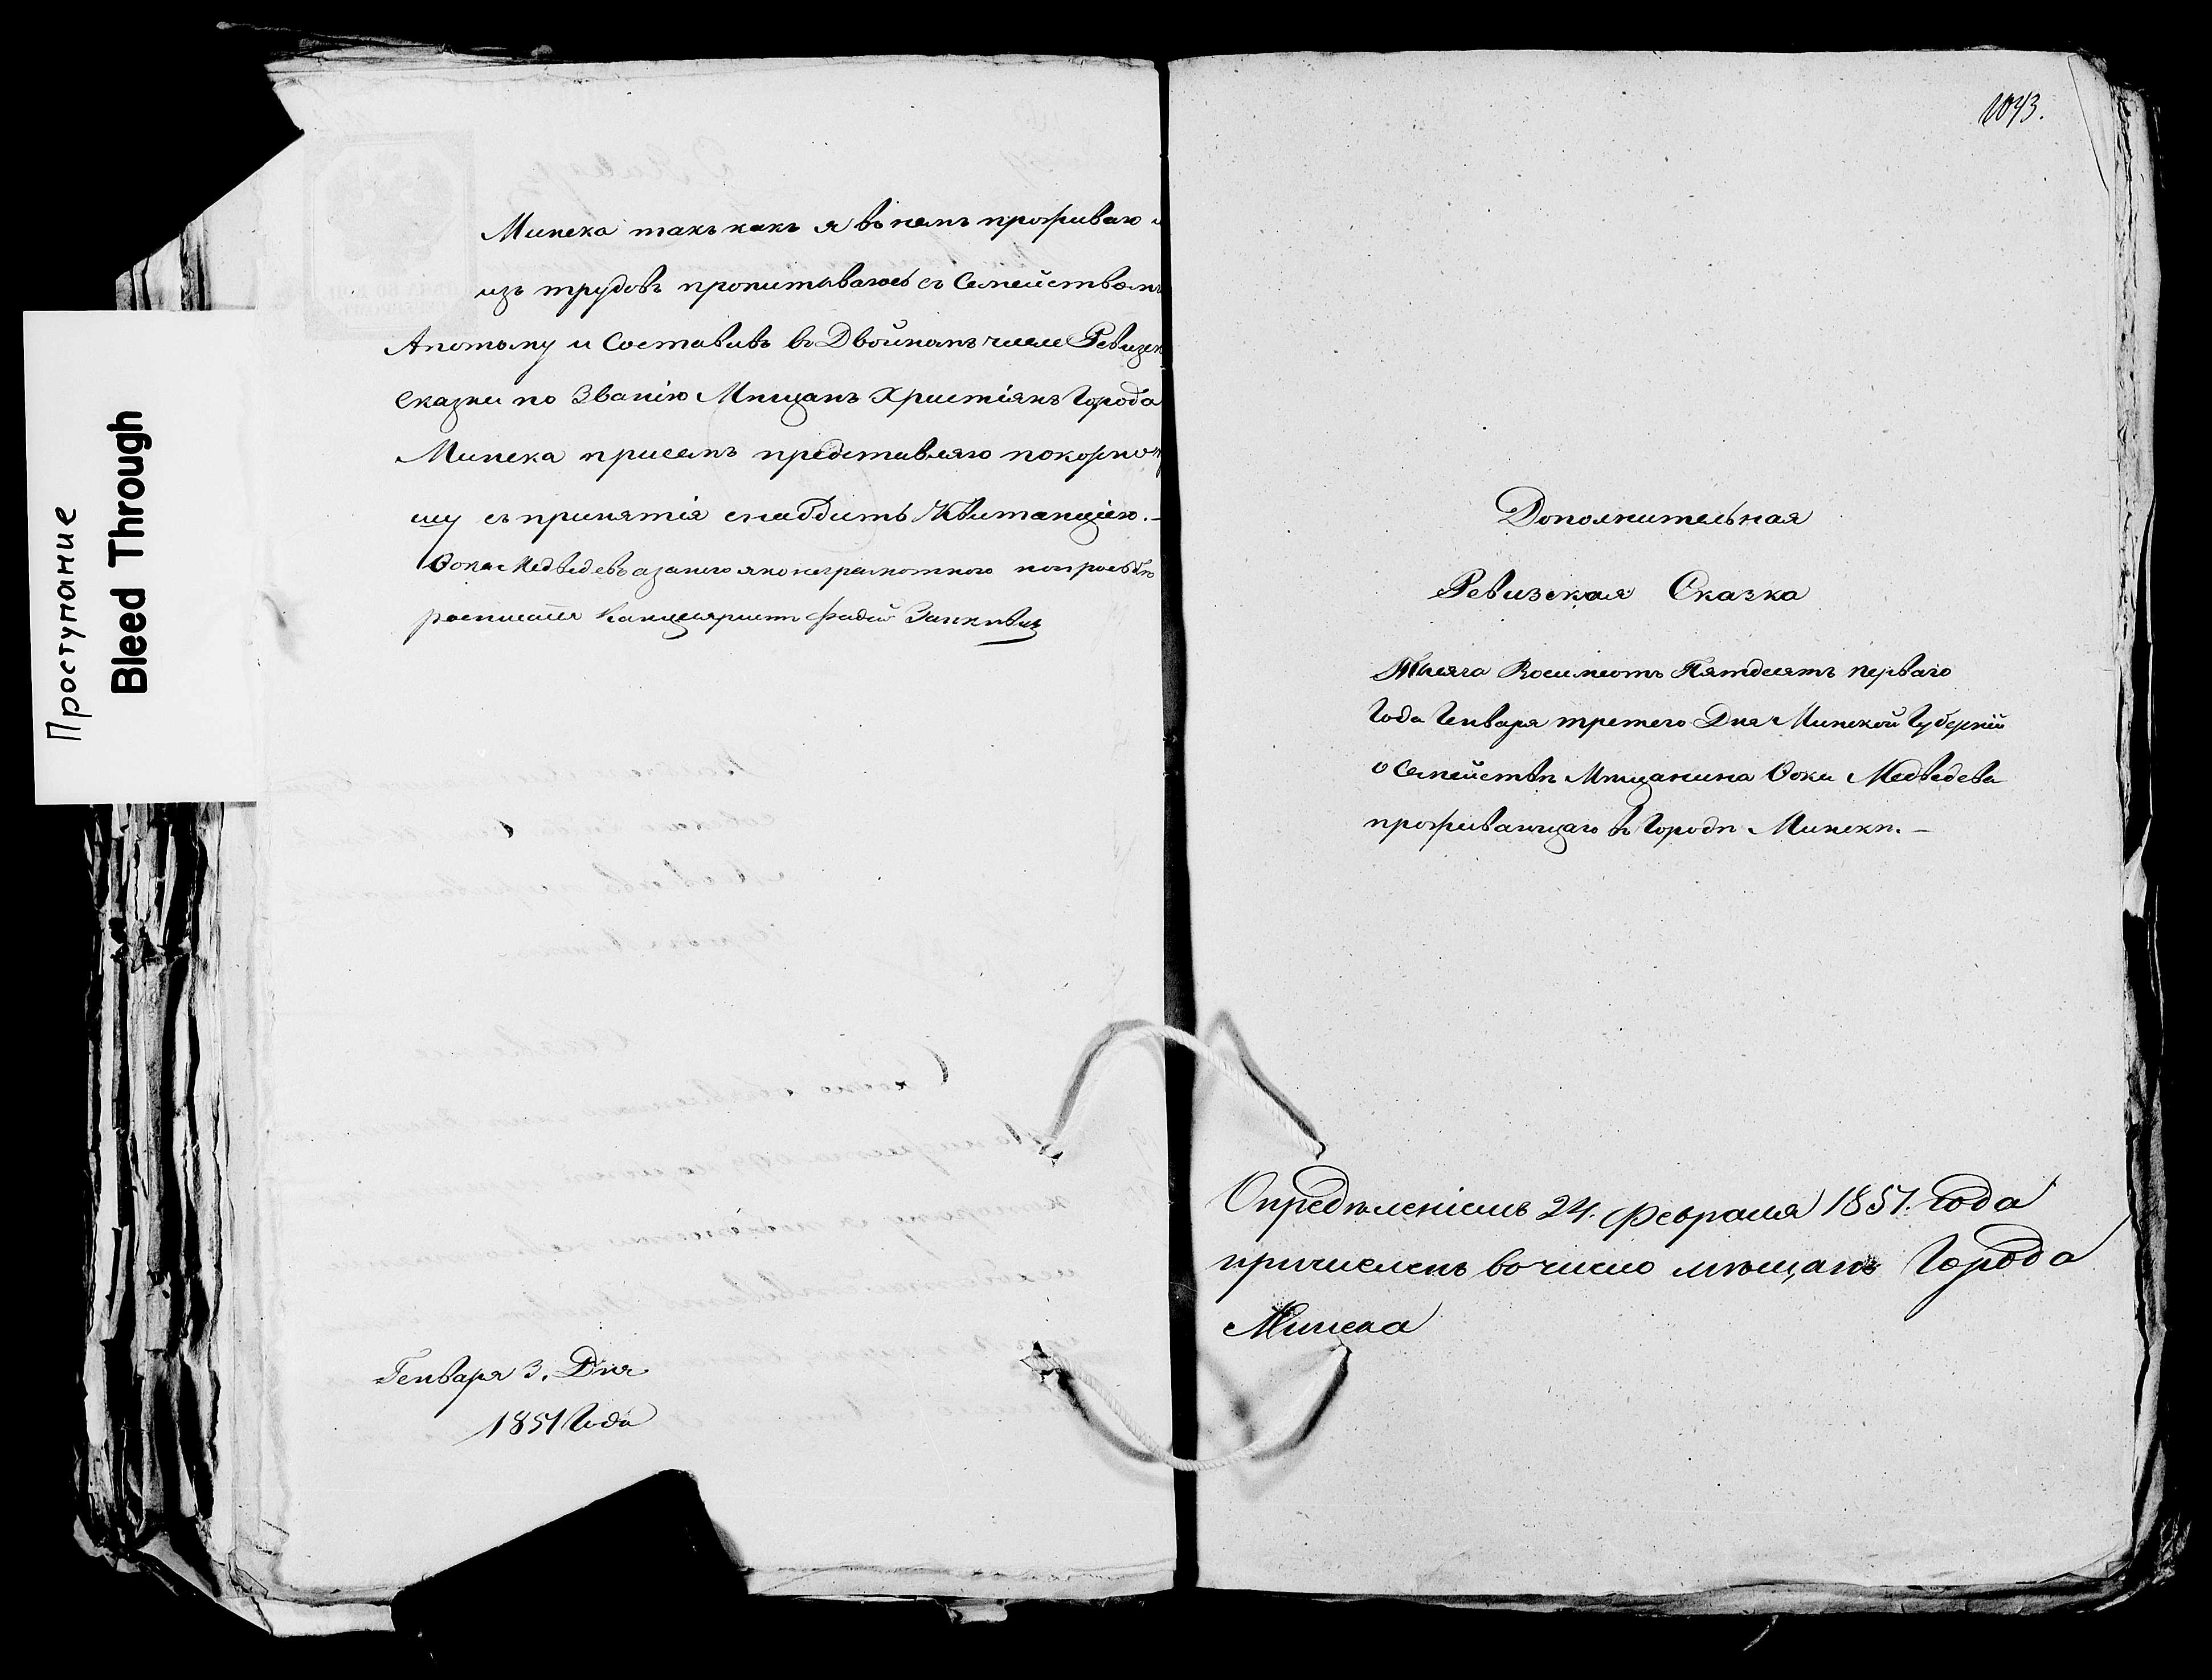 Проступание
Bleed Through
Минска такъ какъ я въ немъ проживаю и
изъ трудовъ пропитываюсь съ Семействомъ
Апотому и Составивъ въ Двойномъ числе Ревизск
Сказки по Званію Мѣщанъ Христіянъ Города
Минска присемъ представляю покорно п
шу съ принятія снабдить Квитанціею.-
Ѳока Медведевъ азанего яко неграмотного попросьбѣ
росписался Канцеляристъ Фадей
Генваря 3. Дня
1851 Года
1043.
Дополнительная
Ревизская Сказка
Тысяча Восимсотъ Пятдесятъ перваго
Года Генваря третего Дня Минской Губерніи
о Семействѣ Мѣщанина Ѳоки Медведева
проживающаго въ Городѣ Минскѣ.-
Опредѣленіемъ 24. Февраля 1851. года
причисленъ во число мѣщанъ Города
Минска